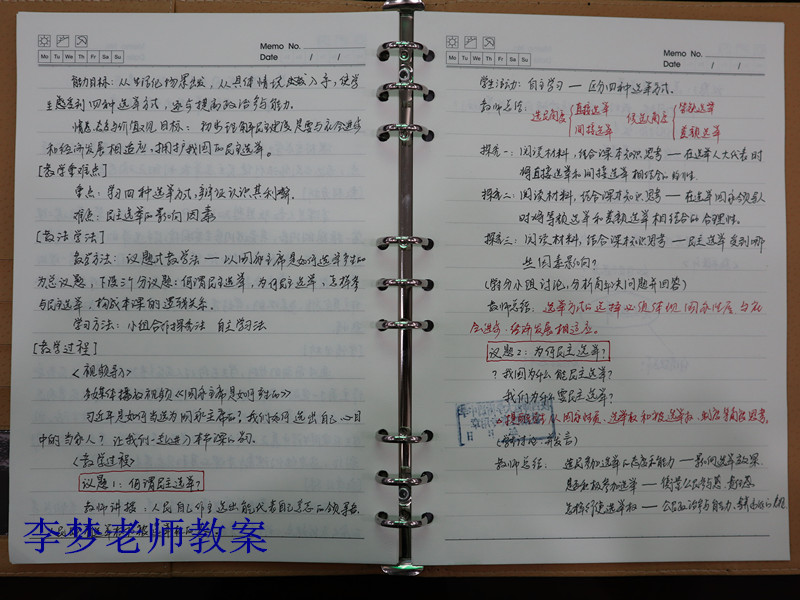 Memo No.
Mo Tu We Th Fr Sa Su
Date / /
能力目标：从生活化物景出发，从具体情境入手，使学
生感受到四种选举方式，逐步提高政治参与能力。
情感态度与价值观目标：初步理解民主选举制度是要与社会进步
和经济发展相适应，拥护我国的民主选举。
[教学重难点]
重点：学习四种选举方式，辩证认识其利弊。
难点：民主选举的影响因素
[教法学法]
教学方法：议题式教学法 — 以国家主席是如何选举产生的
为总议题，下设三个分议题：何谓民主选举，为何民主选举，怎样参
与民主选举，构成本课的逻辑关系。
学习方法：小组合作探究法 自主学习法
[教学过程]
<视频导入>
多媒体播放视频《国家主席是如何产生的》
习近平是如何当选为国家主席的？我们如何选出自己心目
中的当家人？让我们一起走进本节课的学习。
<教学过程>
议题1：何谓民主选举？
教师讲授：人民自己作主选出能代表自己意志的领导者
李梦老师教案
Memo No.
Mo Tu We Th Fr Sa Su
Date / /
学生活动：自主学习 — 区分四种选举方式。
教师总结：选民角度 直接选举 间接选举 候选人角度 等额选举 差额选举
探究一：阅读材料，结合课本知识思考 — 在选举人大代表时
将直接选举和间接选举相结合的
探究二：阅读材料，结合课本知识思考 — 在选举国家领导人
时将等额选举和差额选举相结合的合理性。
探究三：阅读材料，结合课本知识思考 — 民主选举受到哪
些因素影响？
(划分小组讨论，分析每个大问题并回答)
教师总结：选举方式的选择必须体现国家性质、与社
会进步、经济发展相适应。
议题2：为何民主选举？
？我国为什么能民主选举？
我们为什么需民主选举？
从国家性质、选举权和被选举权、制度等角度思考。
教师总结：选民参加选举的态度和能力 — 影响选举效果
是否积极参加选举 — 衡量公民参与意识、责任感
怎样行使选举权 — 公民政治参与能力、